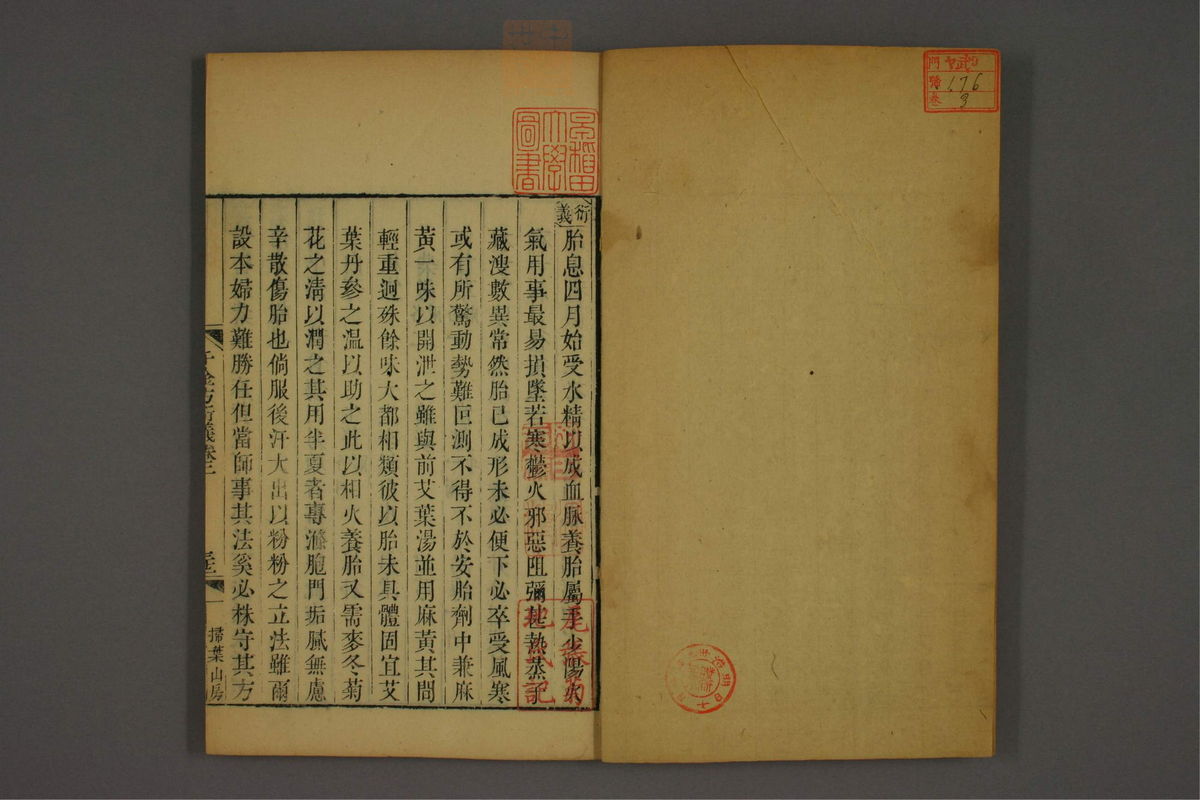 門 
號 176
卷 3
早稲田大學圖書
衍義
胎息四月始受水精以成血脈養胎屬手少陽火
氣用事最易損墜若寒鬱火邪惡阻彌甚熱蒸手
藏溲數異常然胎已成形未必便下必卒受風寒
或有所驚動勢難叵測不得不於安胎劑中兼麻
黃一味以開泄之雖與前艾葉湯並用麻黃其間
輕重迥殊餘味大都相類彼以胎未具體固宜艾
葉丹參之温以助之此以相火養胎又需麥冬菊
花之清以潤之其用半夏者專滌胞門垢膩無慮
辛散傷胎也倘服後汗大出以粉粉之立法雖爾
設本婦力難勝任但當師事其法奚必株守其方
千金方衍義卷三
掃葉山房